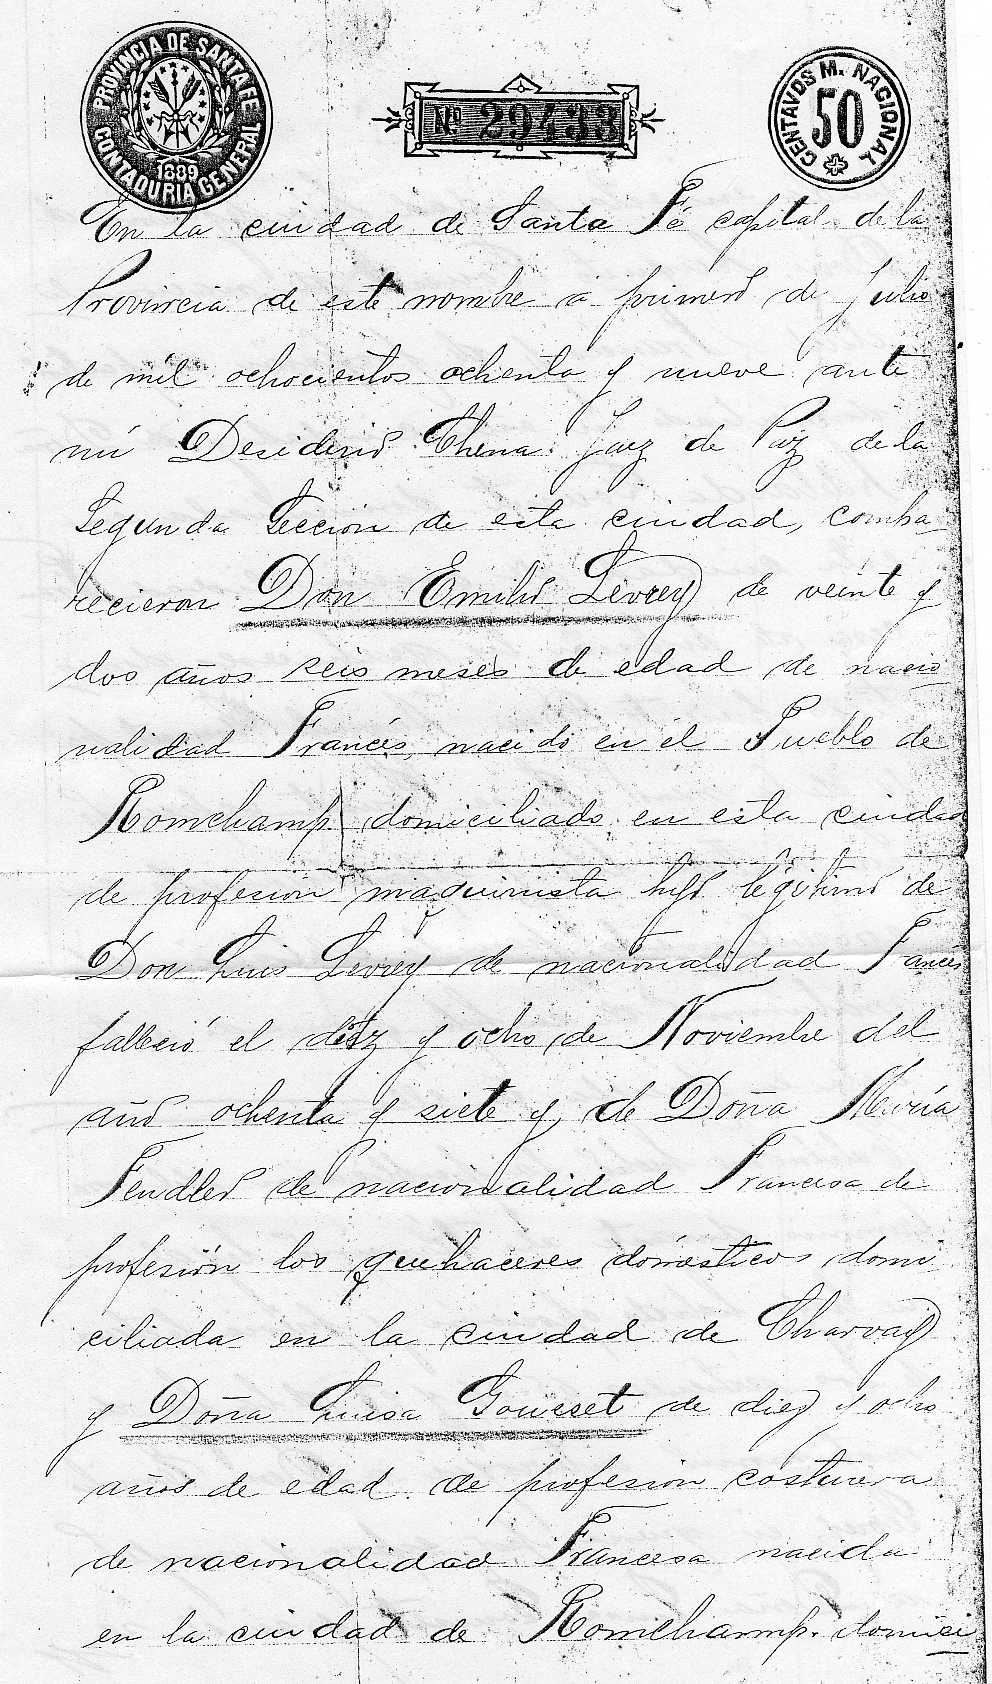 PROVINCIA DE SANTA FE
CONTADURIA GENERAL
1889
Nº 29433
CENTAVOS M. NACIONAL
50
En la ciudad de Santa Fé capital de la
Provincia de este nombre a primero de Julio
de mil ochocientos ochenta y nueve ante
mi Desiderio Thena Juez de Paz de la
Segunda Seccion de esta ciudad, compa
recieron Don Emilio Levrey de veinte y
dos años seis meses de edad de nacio
nalidad Francés, nacido en el Pueblo de
Romchamp domiciliado en esta ciudad
de profesion maquinista hijo légitimo de
Don Luis Levrey de nacionalidad Frances
falleció el diez y ocho de Noviembre del
año ochenta y siete y de Doña María
Fendler de nacionalidad Francesa de
profesión los quehaceres domesticos domi
ciliada en la ciudad de Charvay
y Doña Luisa Gousset de diez y ocho
años de edad de profesion costurera
de nacionalidad Francesa nacida
en la ciudad de Romchamp. domici